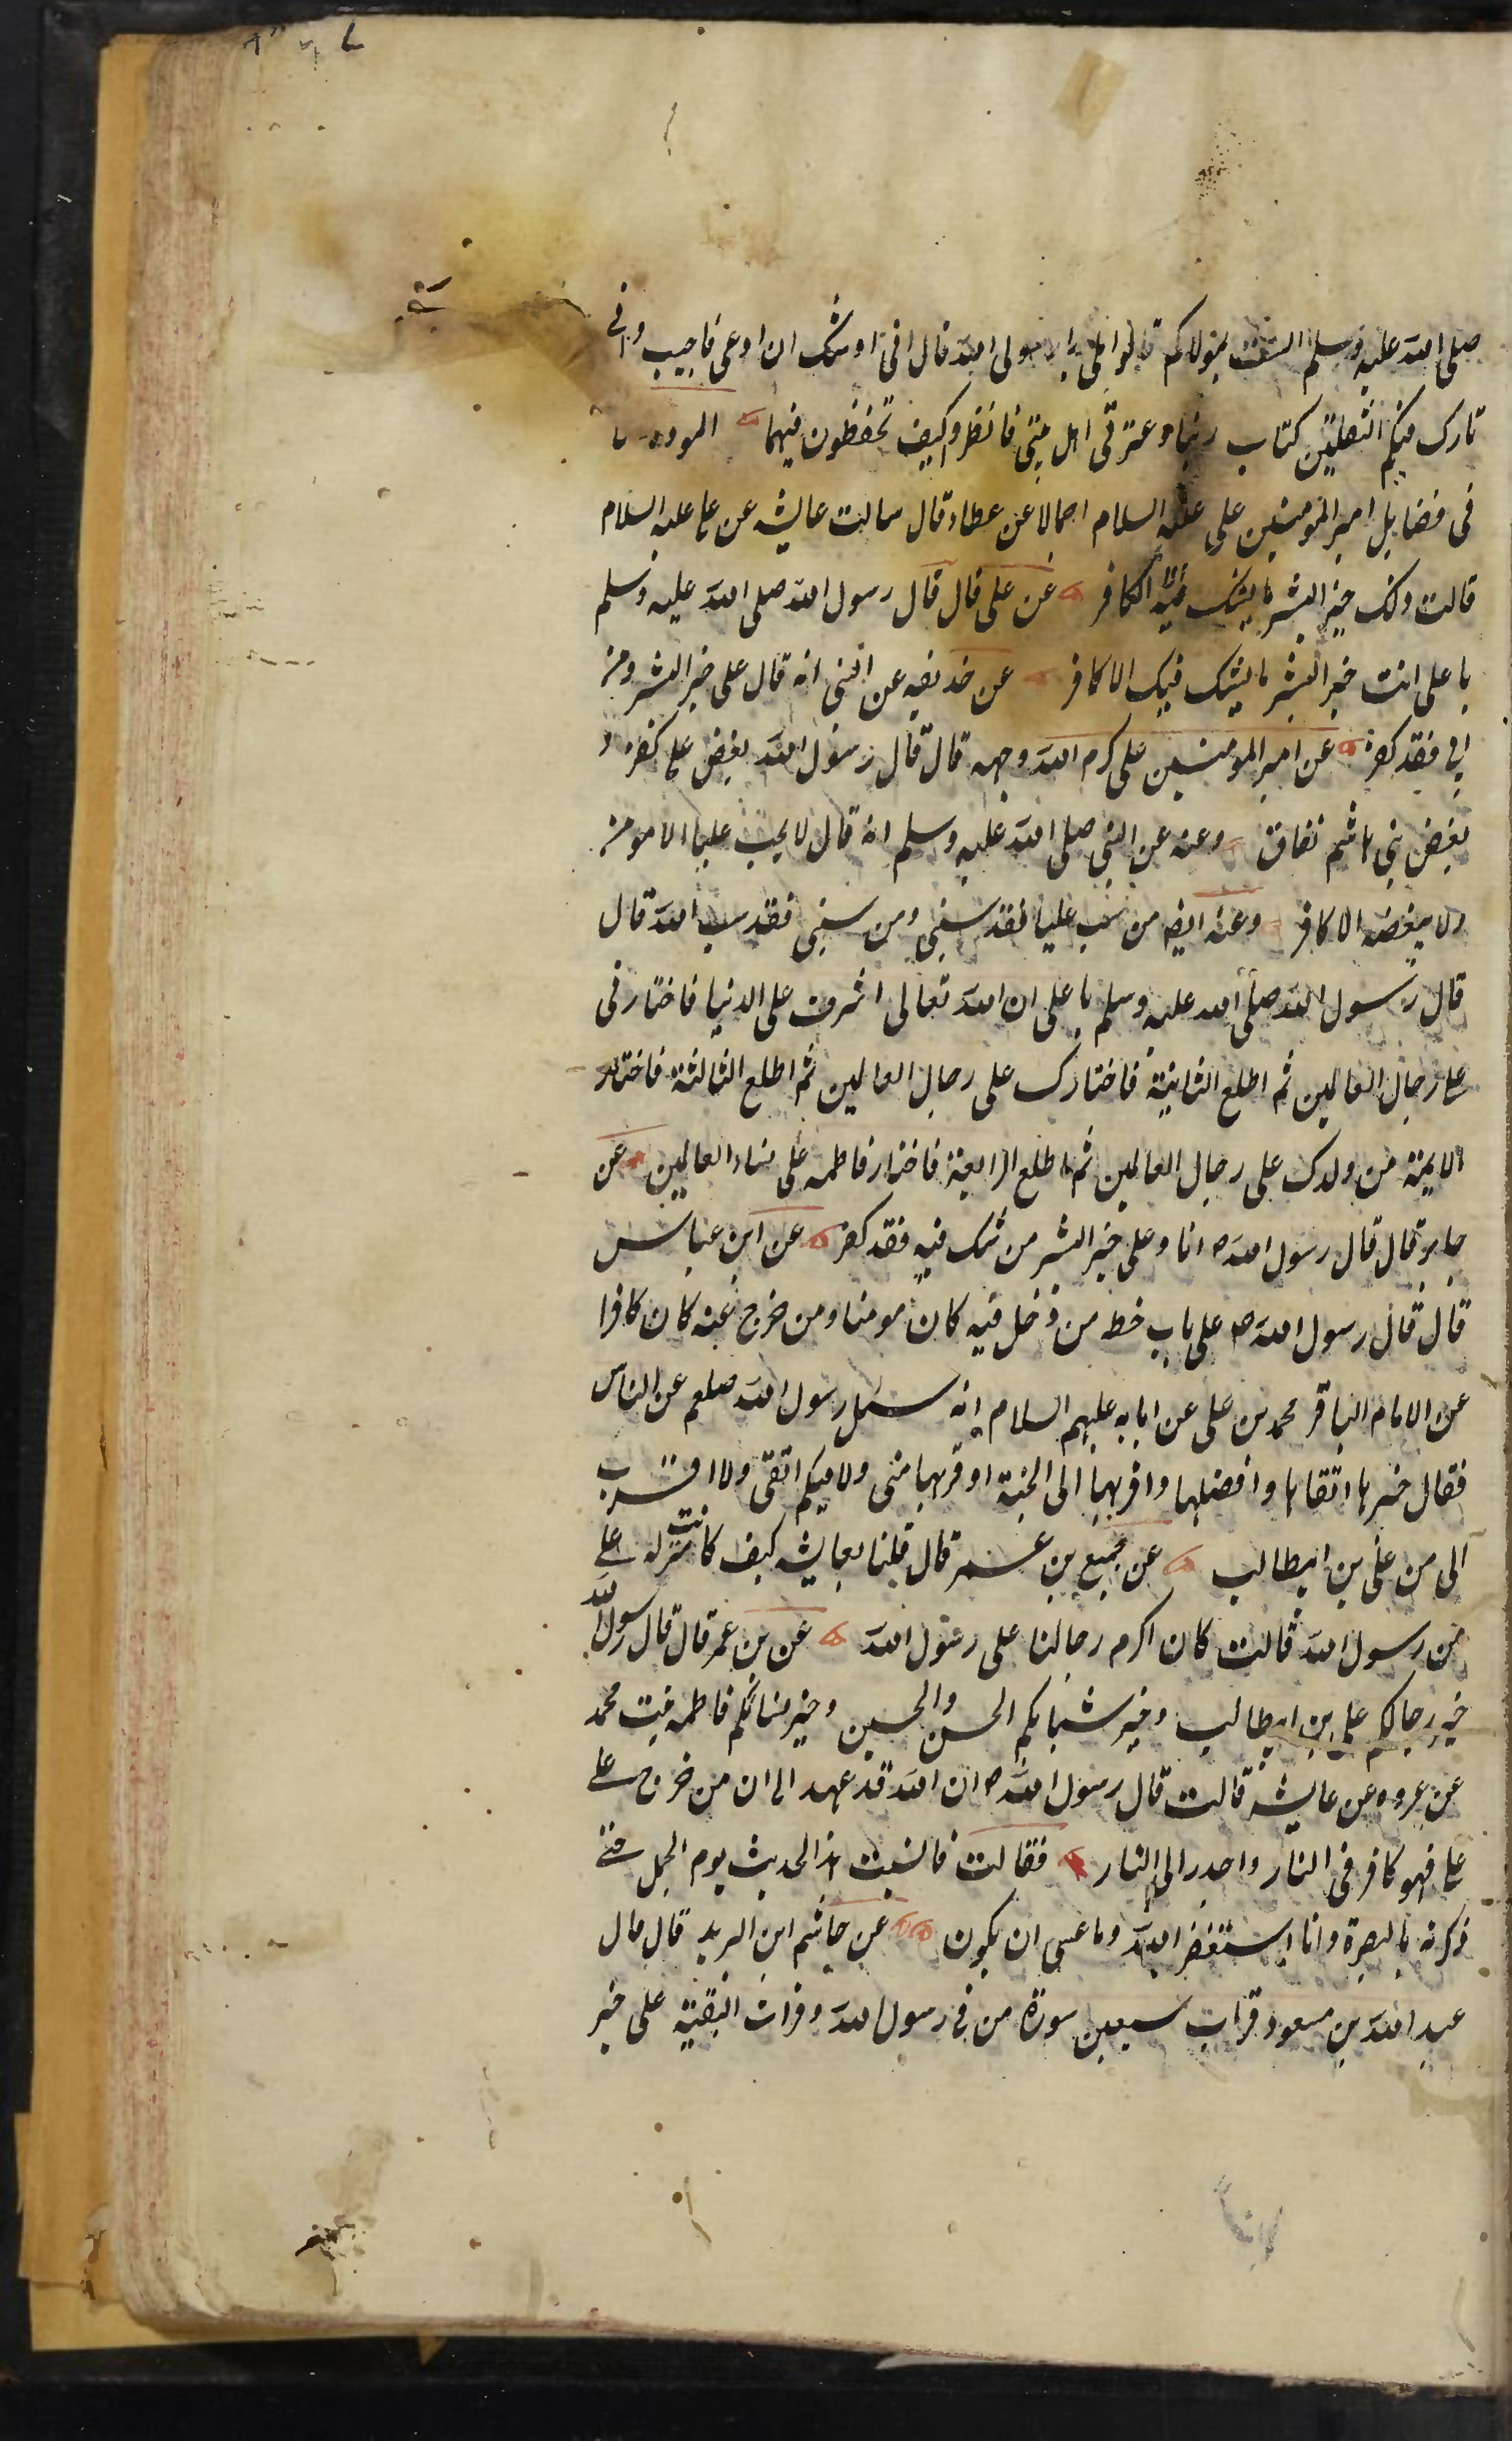 صلى الله عليه وسلم الست بمولاكم قالوا بلى يا رسول الله قال انى اوشك ان ادعى فاجيب وانى
تارك فيكم الثقلين كتاب ربنا وعترتى اهل بيتى فانظروا كيف تحفظون فيهما المودة
فى فضايل امير المومنين على عليه السلام اجمالا عن عطاء قال سالت عايشه عن على عليه السلام
قالت ذلك خير البشر ما يشك فيه الا كافر عن على قال قال رسول الله صلى الله عليه وسلم
يا على انت خير البشر ما يشك فيك الا كافر عن حذيفه عن النبى انه قال على خير البشر ومن
ابى فقد كفر عن امير المومنين على كرم الله وجهه قال قال رسول الله بغض على كفر و
بغض بنى هاشم نفاق وعنه عن النبى صلى الله عليه وسلم انه قال لا يحب عليا الا مومن
ولا يبغضه الا كافر وعنه ايضا من سب عليا فقد سبنى ومن سبنى فقد سب الله قال
قال رسول الله صلى الله عليه وسلم يا على ان الله تعالى اشرف على الدنيا فاختارنى
على رجال العالمين ثم اطلع الثانية فاختارك على رجال العالمين ثم اطلع الثالثة فاختار
الايمة من ولدك على رجال العالمين ثم اطلع الرابعة فاختار فاطمه على نساء العالمين عن
جابر قال قال رسول الله ص انا وعلى خير البشر من شك فيه فقد كفر عن ابن عباس
قال قال رسول الله ص على باب حطه من دخل فيه كان مومنا ومن خرج عنه كان كافرا
عن الامام الباقر محمد بن على عن ابايه عليهم السلام انه سئل رسول الله صلعم عن الناس
فقال خيرها اتقاها وافضلها واقربها الى الجنة اوقربها منى ولا فيكم اتقى ولا اقرب
الى من على بن ابيطالب عن جميع بن عمر قال قلنا لعايشه كيف كانت منزله على
من رسول الله قالت كان اكرم رجالنا على رسول الله عن بن عمر قال قال رسول الله
خير رجالكم على بن ابيطالب وخير شبابكم الحسن والحسين وخير نسائكم فاطمه بنت محمد
عن عروه عن عايشه قالت قال رسول الله ص ان الله قد عهد الى ان من خرج على
على فهو كافر فى النار واجدر الى النار فقالت فانسيت هذا الحديث يوم الجمل حتى
ذكرته بالبصرة وانا استغفر الله وما عسى ان يكون عن حاشم ابن البريد قال قال
عبد الله بن مسعود قرات سبعين سورة من فى رسول الله وقرات البقية على خير